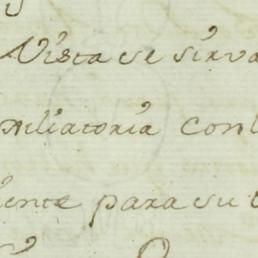 Vista se sirva
ciliatoria con
iente para su